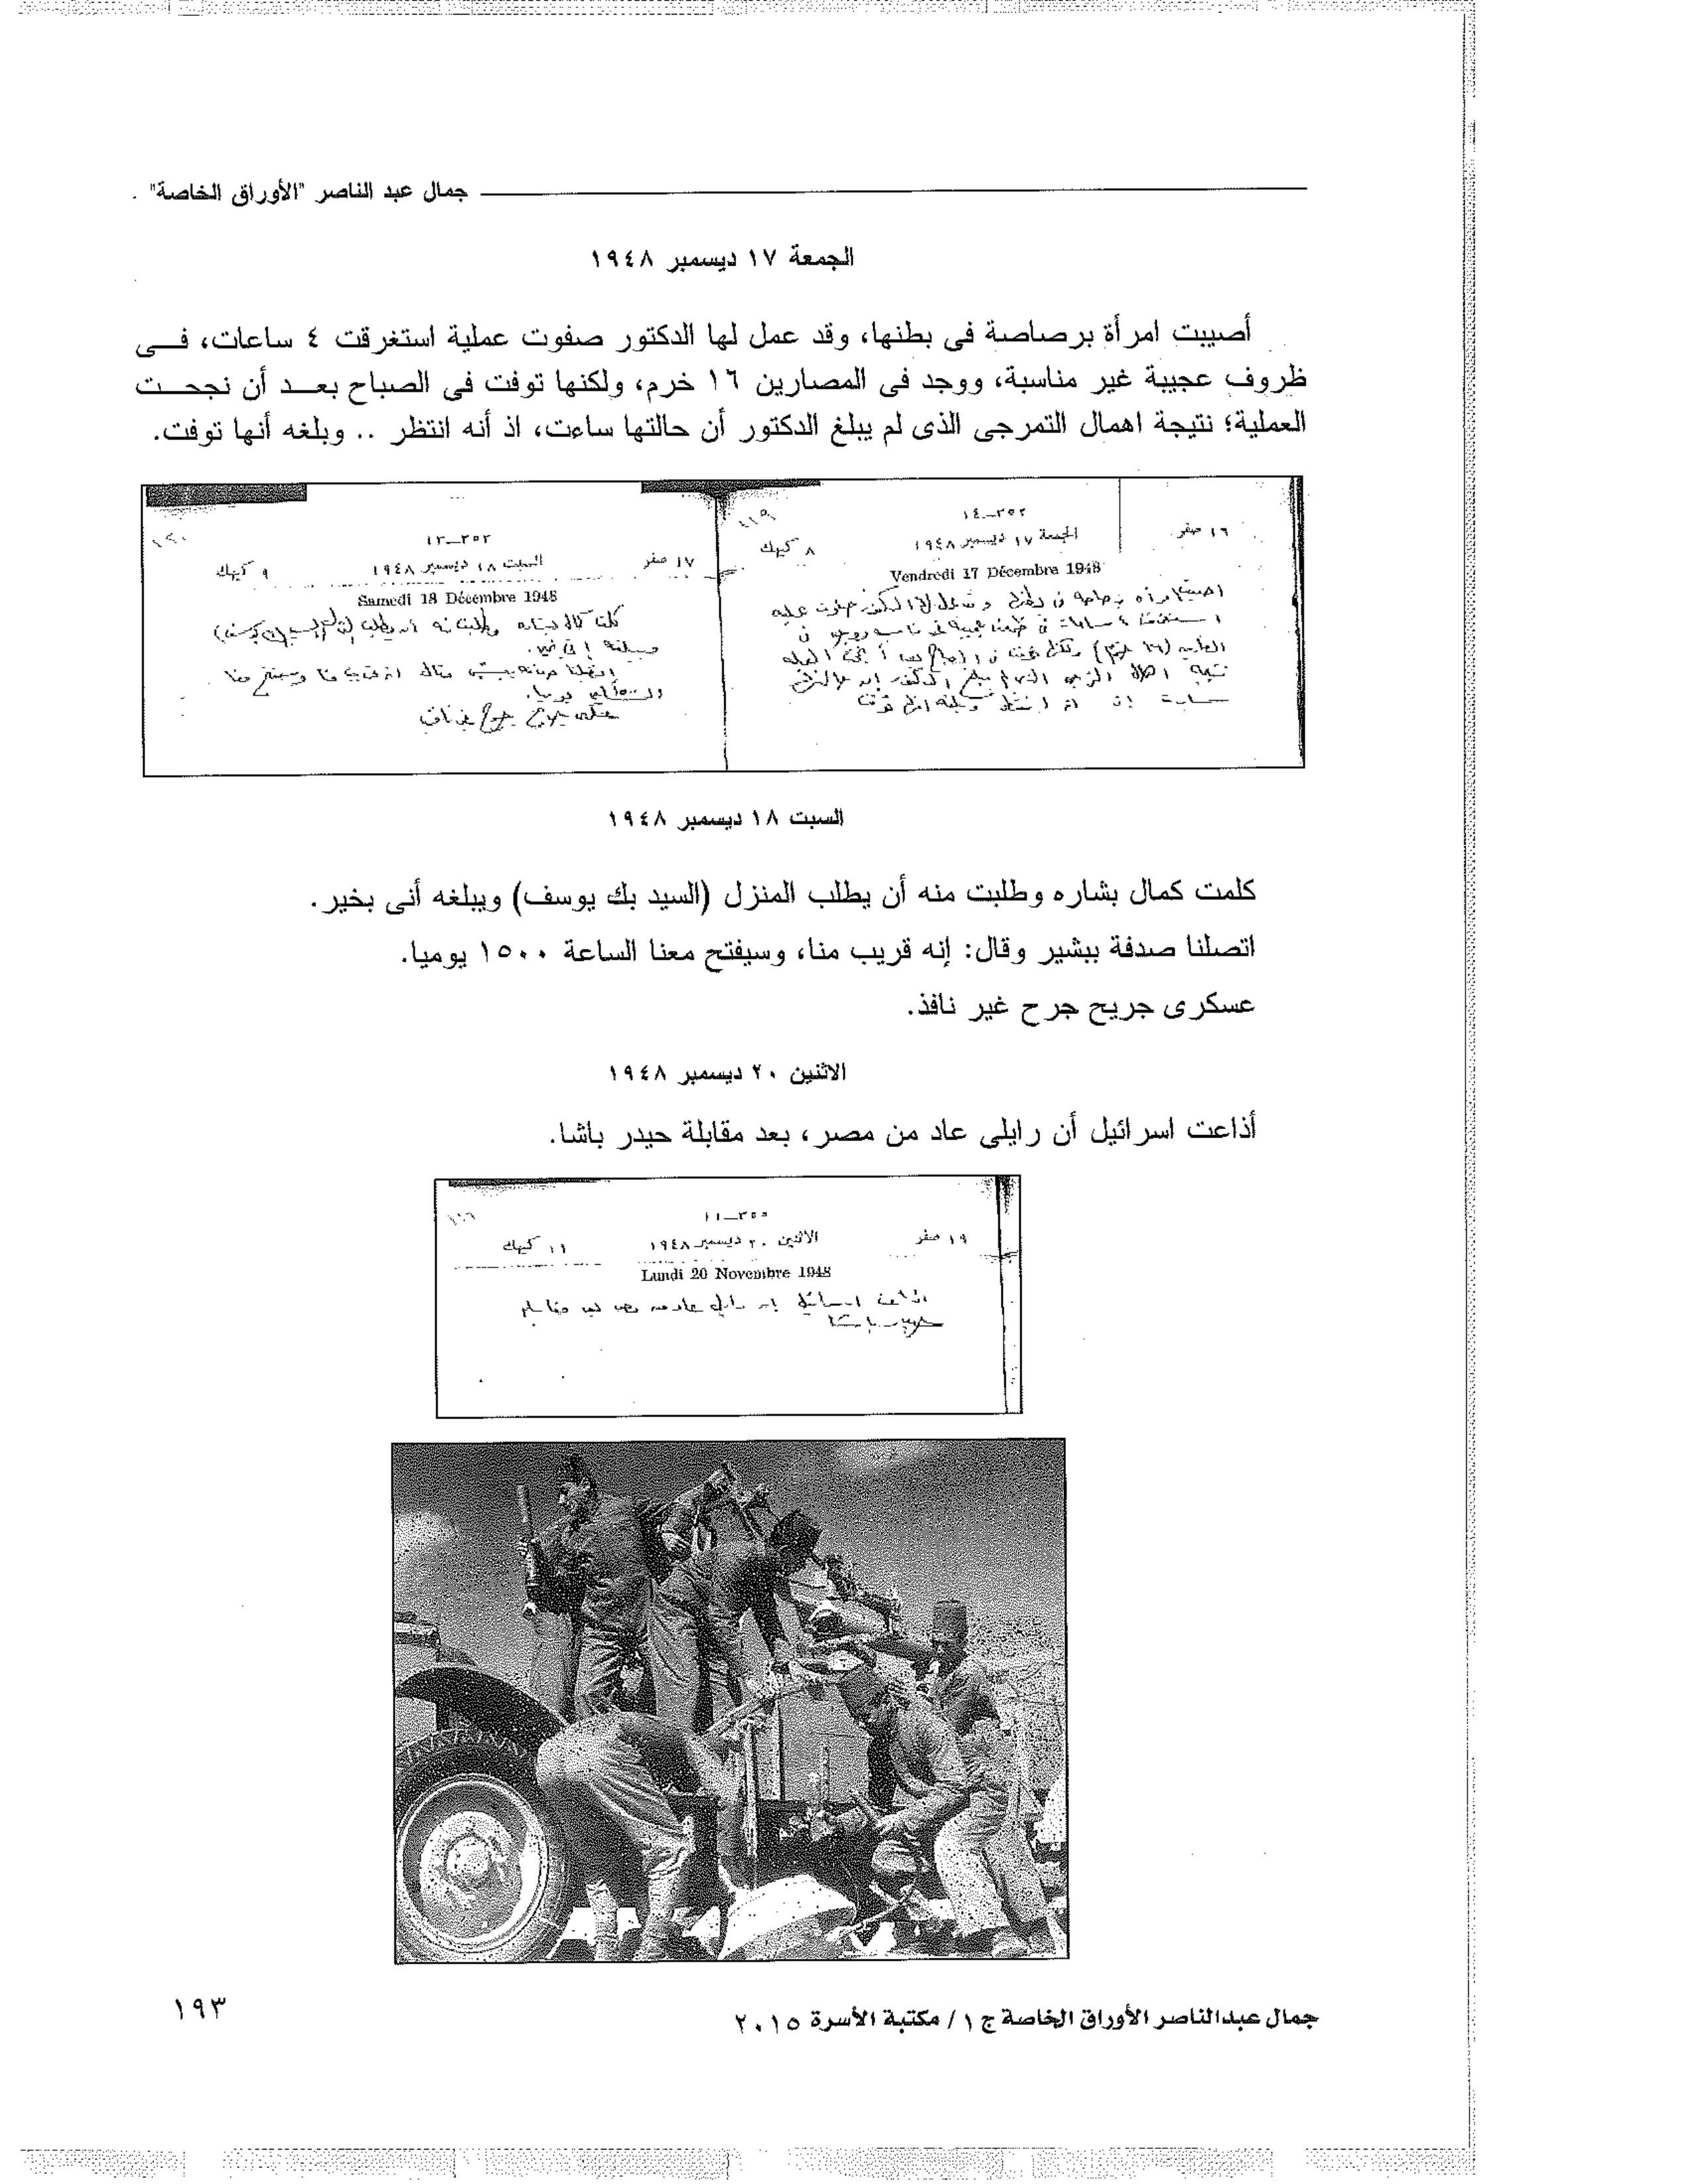 جمال عبد الناصر "الأوراق الخاصة"
الجمعة ١٧ ديسمبر ١٩٤٨
أصيبت امرأة برصاصة فى بطنها، وقد عمل لها الدكتور صفوت عملية استغرقت ٤ ساعات، فى
ظروف عجيبة غير مناسبة، ووجد فى المصارين ١٦ خرم، ولكنها توفت فى الصباح بعد أن نجحت
العملية؛ نتيجة اهمال التمرجى الذى لم يبلغ الدكتور أن حالتها ساءت، اذ أنه انتظر .. وبلغه أنها توفت.
٣٥٢-١٤
١٦ صفر
الجمعة ١٧ ديسمبر ١٩٤٨
٨ كيهك
Vendredi 17 Décembre 1948
٣٥٣-١٣
١٧ صفر
السبت ١٨ ديسمبر ١٩٤٨
٩ كيهك
Samedi 18 Décembre 1948
السبت ١٨ ديسمبر ١٩٤٨
كلمت كمال بشاره وطلبت منه أن يطلب المنزل (السيد بك يوسف) ويبلغه أنى بخير.
اتصلنا صدفة ببشير وقال: إنه قريب منا، وسيفتح معنا الساعة ١٥٠٠ يوميا.
عسكرى جريح جرح غير نافذ.
الاثنين ٢٠ ديسمبر ١٩٤٨
أذاعت اسرائيل أن رايلى عاد من مصر، بعد مقابلة حيدر باشا.
٣٥٥-١١
١٩ صفر
الاثنين ٢٠ ديسمبر ١٩٤٨
١١ كيهك
Lundi 20 Novembre 1948
اذاعت اسرائيل ان رايلى عاد من مصر بعد مقابلة
حيدر باشا
جمال عبدالناصر الأوراق الخاصة ج ١ / مكتبة الأسرة ٢٠١٥
١٩٣